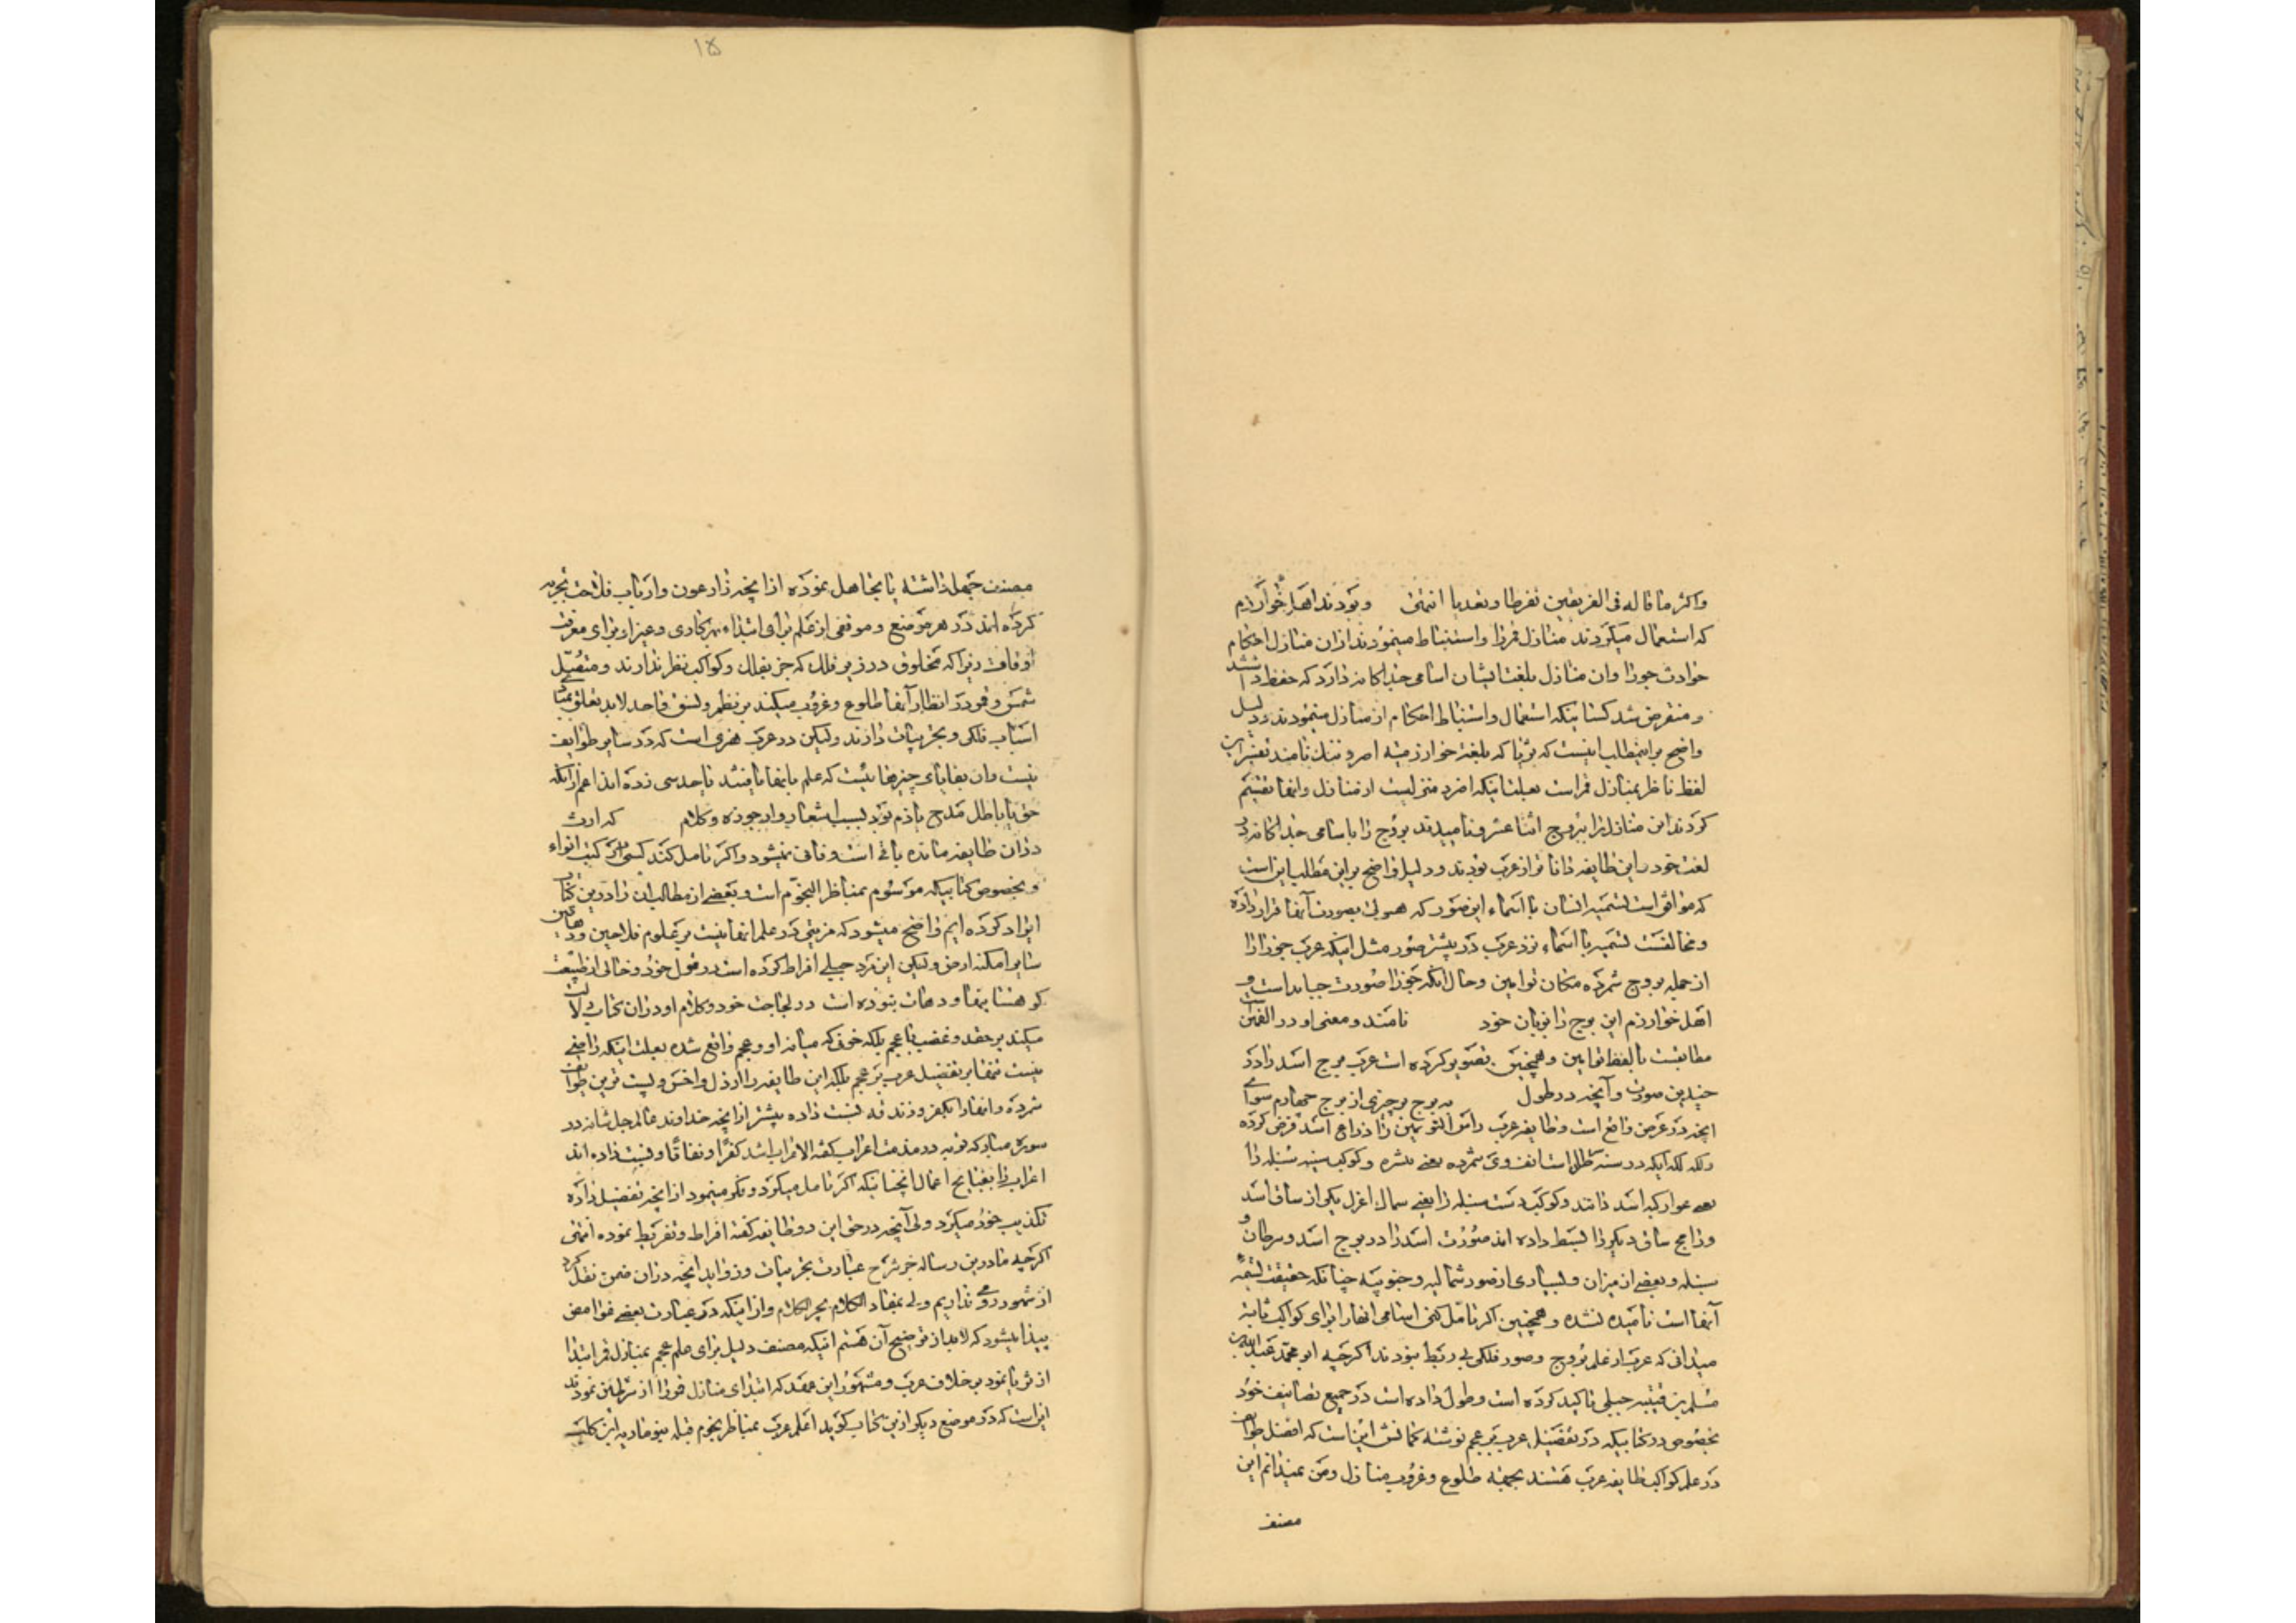 واکثر ما قاله فی الفریقین تفرطا وتعدیا انتهی وبودند اهل خوارزم
که استعمال میکردند منازل قمرا واستنباط مینمودند ازان منازل احکام
حوادث جورا وان منازل بلغت ایشان اسامی جداکانه دارد که حفظ داشتند
ومنقرض شد کسانیکه استعمال واستنباط احکام از منازل مینمودند ودلیل
واضح براینمطلب اینست که بلغت خوارزمیه نامند
لفظ ناظر بمنازل قمر است بعلت اینکه منزلیست از منازل وانها تقسیم
کردند این منازل را ببروج اثنا عشر ونامیدند بروج را باسامی جداکانه در
لغت خود این طایفه داناتر از عرب بودند ودلیل واضح بر این مطلب این است
که موافق است تسمیه ایشان با اسماء این صور که بصورت آنها قرار داده
ومخالفست تسمیه با اسماء نزد عرب در بیشتر صور مثل اینکه عرب جوزا را
از جمله بروج شمرده مکان توامین وحال آنکه جوزا صورت جبار است و
اهل خوارزم این برج را بزبان خود نامند ومعنی او در
مطابقست با لفظ توامین وهمچنین تصویر کرده است عرب برج اسد را در
چندین صورت وآنچه در طول برج از برج چهارم سوای
آنچه در عرض واقع است وطایفه عرب راس التوامین را ذراع اسد فرض کرده
شمرده یعنی نثره وکوکب سنبله را
اسد دانند وکوکب سنبله را یعنی سماک اعزل یکی از ساق اسد
ورامح ساق دیکر را بسط داده اند صورت اسد را در برج اسد وسرطان و
سنبله وبعضی از میزان وبسیاری از صور شمالیه وجنوبیه چنانکه حقیقت تسمیه
آنها است نامیده نشده وهمچنین اکر تامل کنی اسامی انها را برای کواکب ثابته
میدانی که عرب از علم بروج وصور فلکی بی ربط بودند اکرچه ابو محمد عبدالله بن
مسلم بن قتیبه جبلی تاکید کرده است وطول داده است در جمیع تصانیف خود
بخصوص در کتابیکه در تفضیل عرب بر عجم نوشته کمانش این است که افضل طوایف
در علم کواکب طایفه عرب هستند بجهته طلوع وغروب منازل ومن نمیدانم این
مصنف
۱۵
مصنف جهل داشته یا تجاهل نموده از آنچه زارعون وارباب فلاحت تجربه
کرده اند در هر موضع وموقعی از علم برای ابتداء هر کاری وغیر او برای معرفت
اوقات زیرا که مخلوق در زیر فلک که جز بفلک وکواکب نظر ندارند
شمس وقمر در انظار آنها طلوع وغروب میکند بر نظم ونسق واحد لابد تعلق
اسباب فلکی وتجربیات دارند ولیکن در عرب هنری است که در سایر طوایف
نیست وان بقایای چیزهائیست که علم بانها یافتند یا حدسی زده اند اعم از آنکه
حق یا باطل مدح یا ذم بود بسبب اشعار وارجوزه وکلام که ارث
دران طایفه مانده باقی است وفانی نمیشود واکر تامل کند کسی در کتب انواء
وبخصوص کتابیکه موسوم بمناظر النجوم است وبعضی از مطالب ان را در این کتاب
ایراد کرده ایم واضح میشود که مزیتی در علم انها نیست بر علوم فلاحین ودهاقین
سایر امکنه ارض ولیکن این مرد جبلی افراط کرده است در قول خود وخالی از طبیعت
کوهستانیها ودهات نبوده است در لجاجت خود وکلام او دران کتاب دلالت
میکند بر حقد وغضب با عجم بلکه خونی که میانه او وعجم واقع شده بعلت اینکه راضی
نیست تنها بر تفضیل عرب بر عجم بلکه این طایفه را ارذل واخس وپست ترین طوایف
شمرده وانها را بکفر وزندقه نسبت داده بیشتر از آنچه خداوند عالم جل شانه در
سوره مبارکه توبه در مذمت اعراب کفته الاعراب اشد کفرا ونفاقا ونسبت داده اند
اعراب را بقبایح اعمال انچنانیکه اکر تامل میکرد وفکر مینمود از انچه تفضیل داده
تکذیب خود میکرد ولی آنچه در حق این دو طایفه کفته افراط وتفریط نموده انتهی
اکرچه ما در این رساله جز شرح عبارت تجربیات وزواید انچه دران ضمن نقل کرد
از شهود روی نداریم ولی بمفاد الکلام یجر الکلام واز اینکه در عبارت بعضی غوامض
پیدا میشود که لابد از توضیح آن هستم اینکه مصنف دلیل برای علم عجم بمنازل قمر ابتدا
از ثریا نمود بر خلاف عرب ومشهور این عقد که ابتدای منازل قمر را از شرطین نمودند
این است که در موضع دیکر ازین کتاب کوید اعلم عرب بمناظر نجوم قبله بنو ماریه ابن کلب